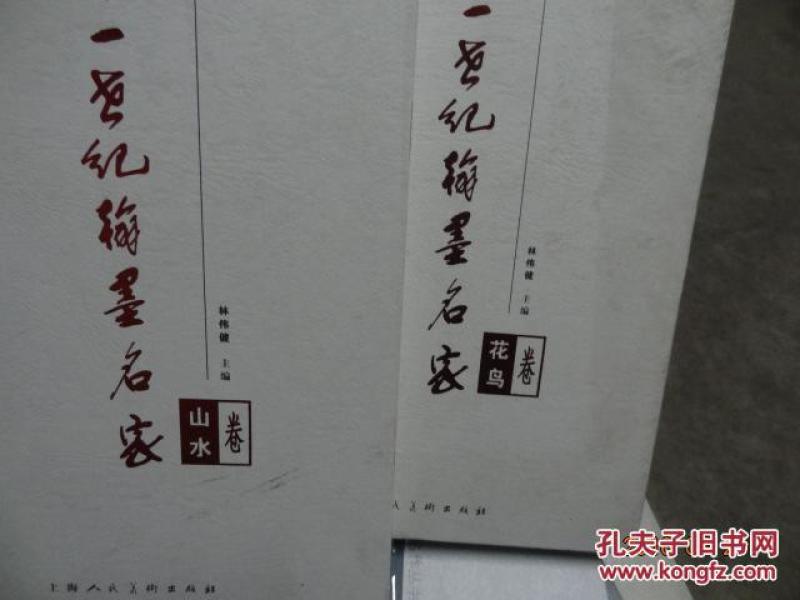 一世纪翰墨名家
林伟健 主编
山水卷
上海人民美术出版社
一世纪翰墨名家
林伟健 主编
花鸟卷
民美術出版社
孔夫子旧书网
www.kongfz.com